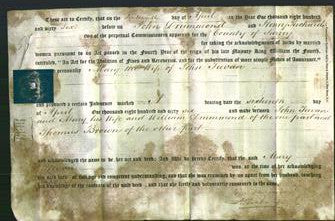 These are to Certify, that on the day of April in the Year One thousand eight hundred
and forty Six before John Drummond and
two of the perpetual Commissioners appointed for the County of Surrey
for taking the acknowledgments of deeds by married
women pursuant to an Act passed in the Fourth Year of the reign of his late Majesty King William the Fourth,
entitled, "An Act for the Abolition of Fines and Recoveries, and for the substitution of more simple Modes of Assurance,"
personally Mary the wife of John
and produced a certain Indenture marked bearing date the sixteenth day
of April One thousand eight hundred and forty six and made between John
and Mary his Wife and William Drummond of the one part and
Thomas Brown of the other part
and acknowledged the same to be her act and deed: And We do hereby Certify, that the said Mary
was, at the time of her acknowledging
the said deed, of full age and competent understanding, and that she was examined by us apart from her husband, touching
her knowledge of the contents of the said deed, and that she freely and voluntarily consented to the same.